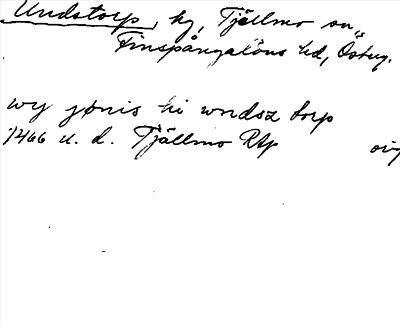 Undstorp, hg, Tjällmo sn,
Finspångaläns hd, Östug.
wy jønis hi wndsz torp
1466 u. d. Tjällmo RAp orig